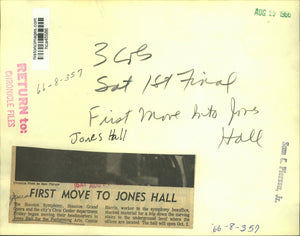 AUG 29 1966
historicimages.com
RETURN TO:
CHRONICLE FILES
66-8-357
3 Cols
Sat 1st Final
First Move Into Jones
Hall
Jones Hall
Sam C. Pierson, Jr.
FIRST MOVE TO JONES HALL
Houston Symphony, Houston Grand
Opera and the city's Civic Center department
Friday began moving their headquarters to
Jones Hall for the Performing Arts.
Harris, worker in the symphony box office,
material for a trip down the
to the underground level where the
offices are located. The hall will open Oct. 2.
66-8-357